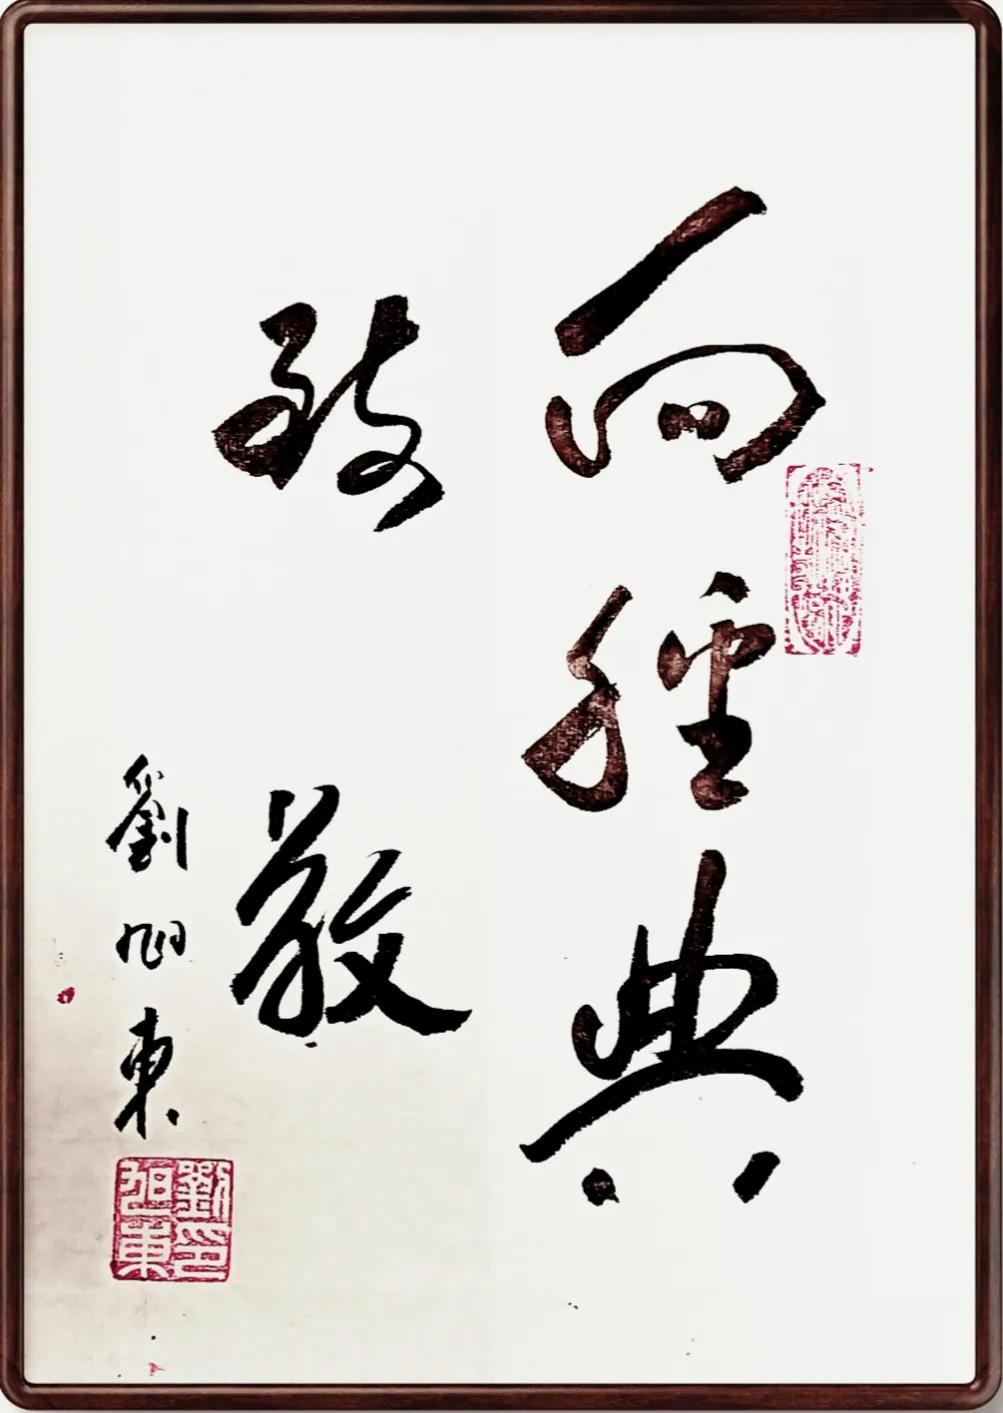 向經典
致敬
劉旭東
劉印
旭東